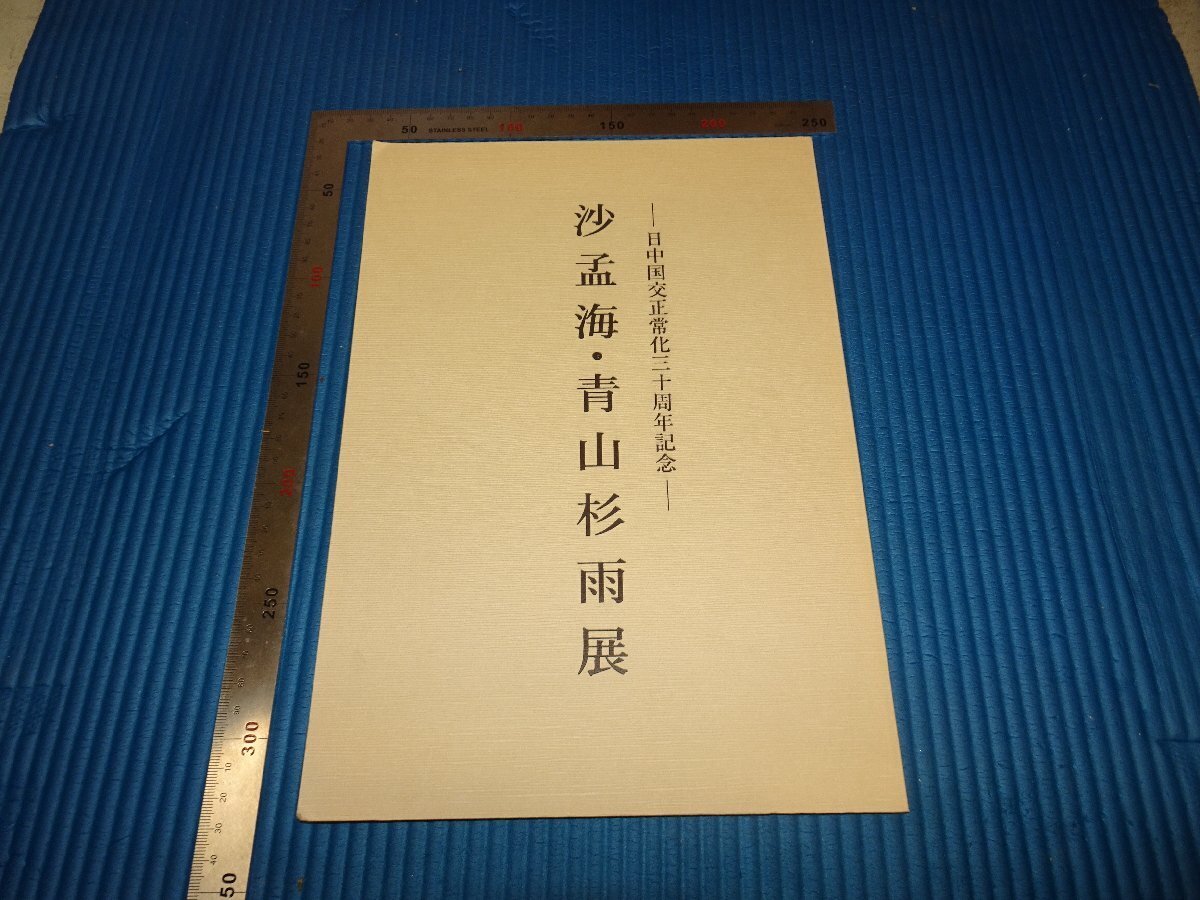 ―日中国交正常化三十周年記念―
沙孟海・青山杉雨展
50 STAINLESS STEEL 100 150 200 250
50
100
150
200
250
300
50